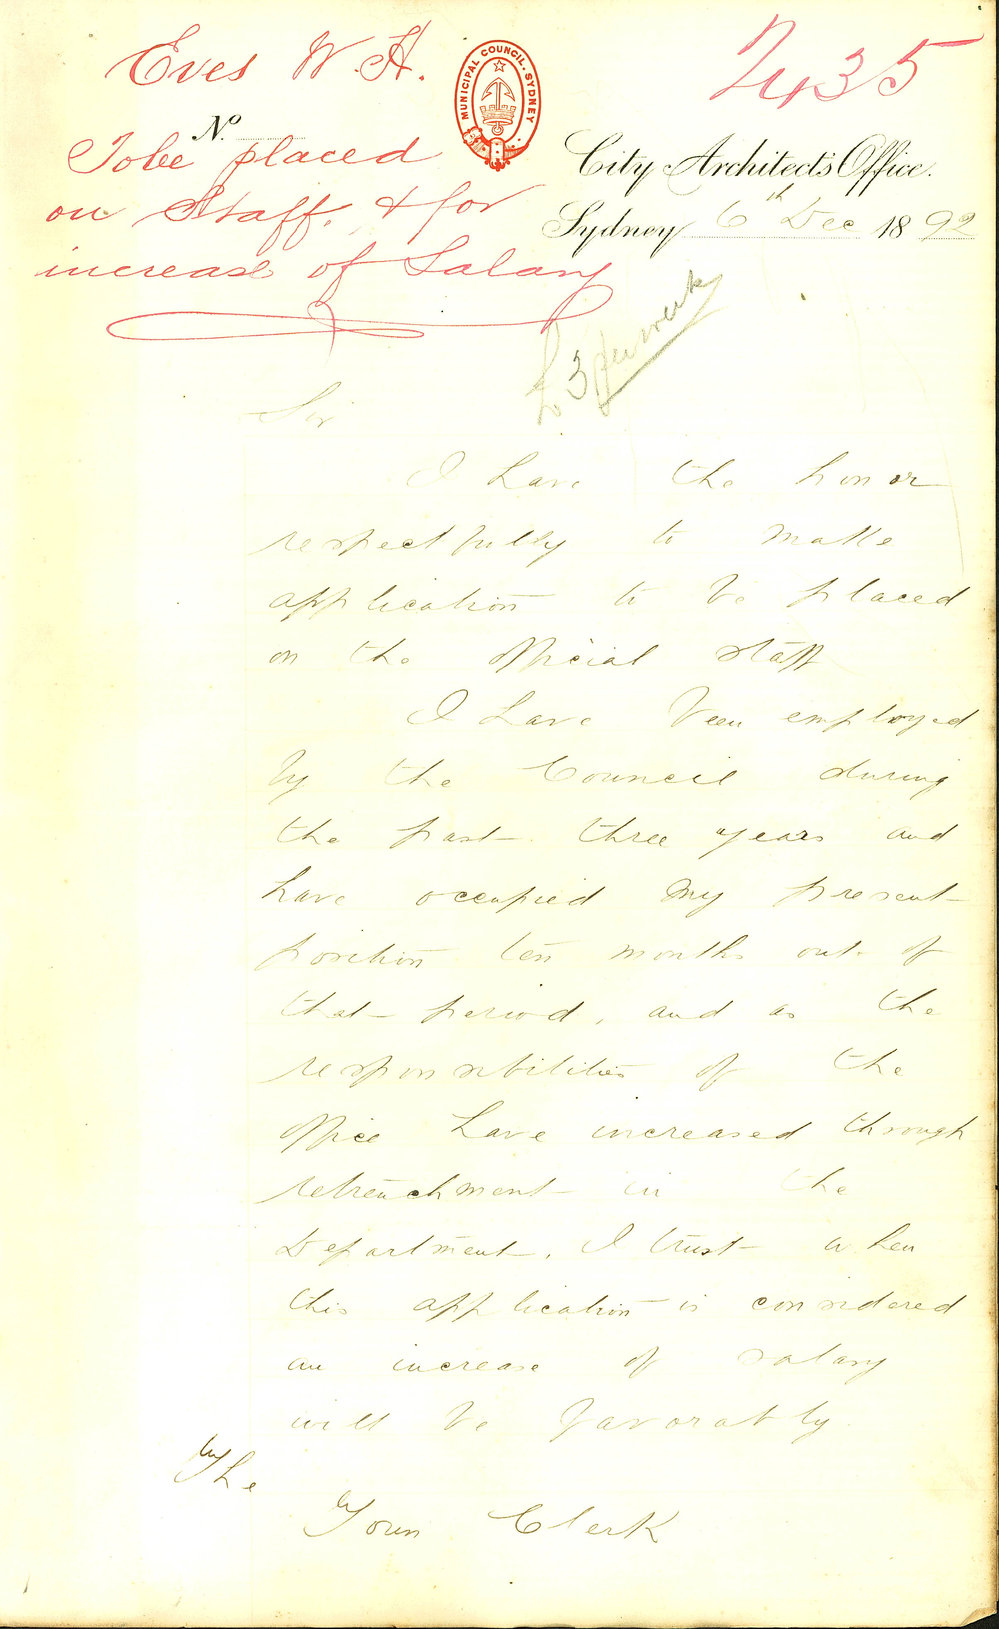 Eves W. H.
2435
MUNICIPAL COUNCIL. SYDNEY
No
To be placed
on Staff. & for
increase of Salary
City Architect's Office.
Sydney 6th Dec 1892
£3 per week
Sir
I have the honor
respectfully to make
application to be placed
on the official staff
I have been employed
by the Council during
the past three years and
have occupied my present
position ten months out of
that period, and as the
responsibilities of the
office have increased through
retrenchment in the
Department. I trust when
this application is considered
an increase of salary
will be favorably
The
Town Clerk